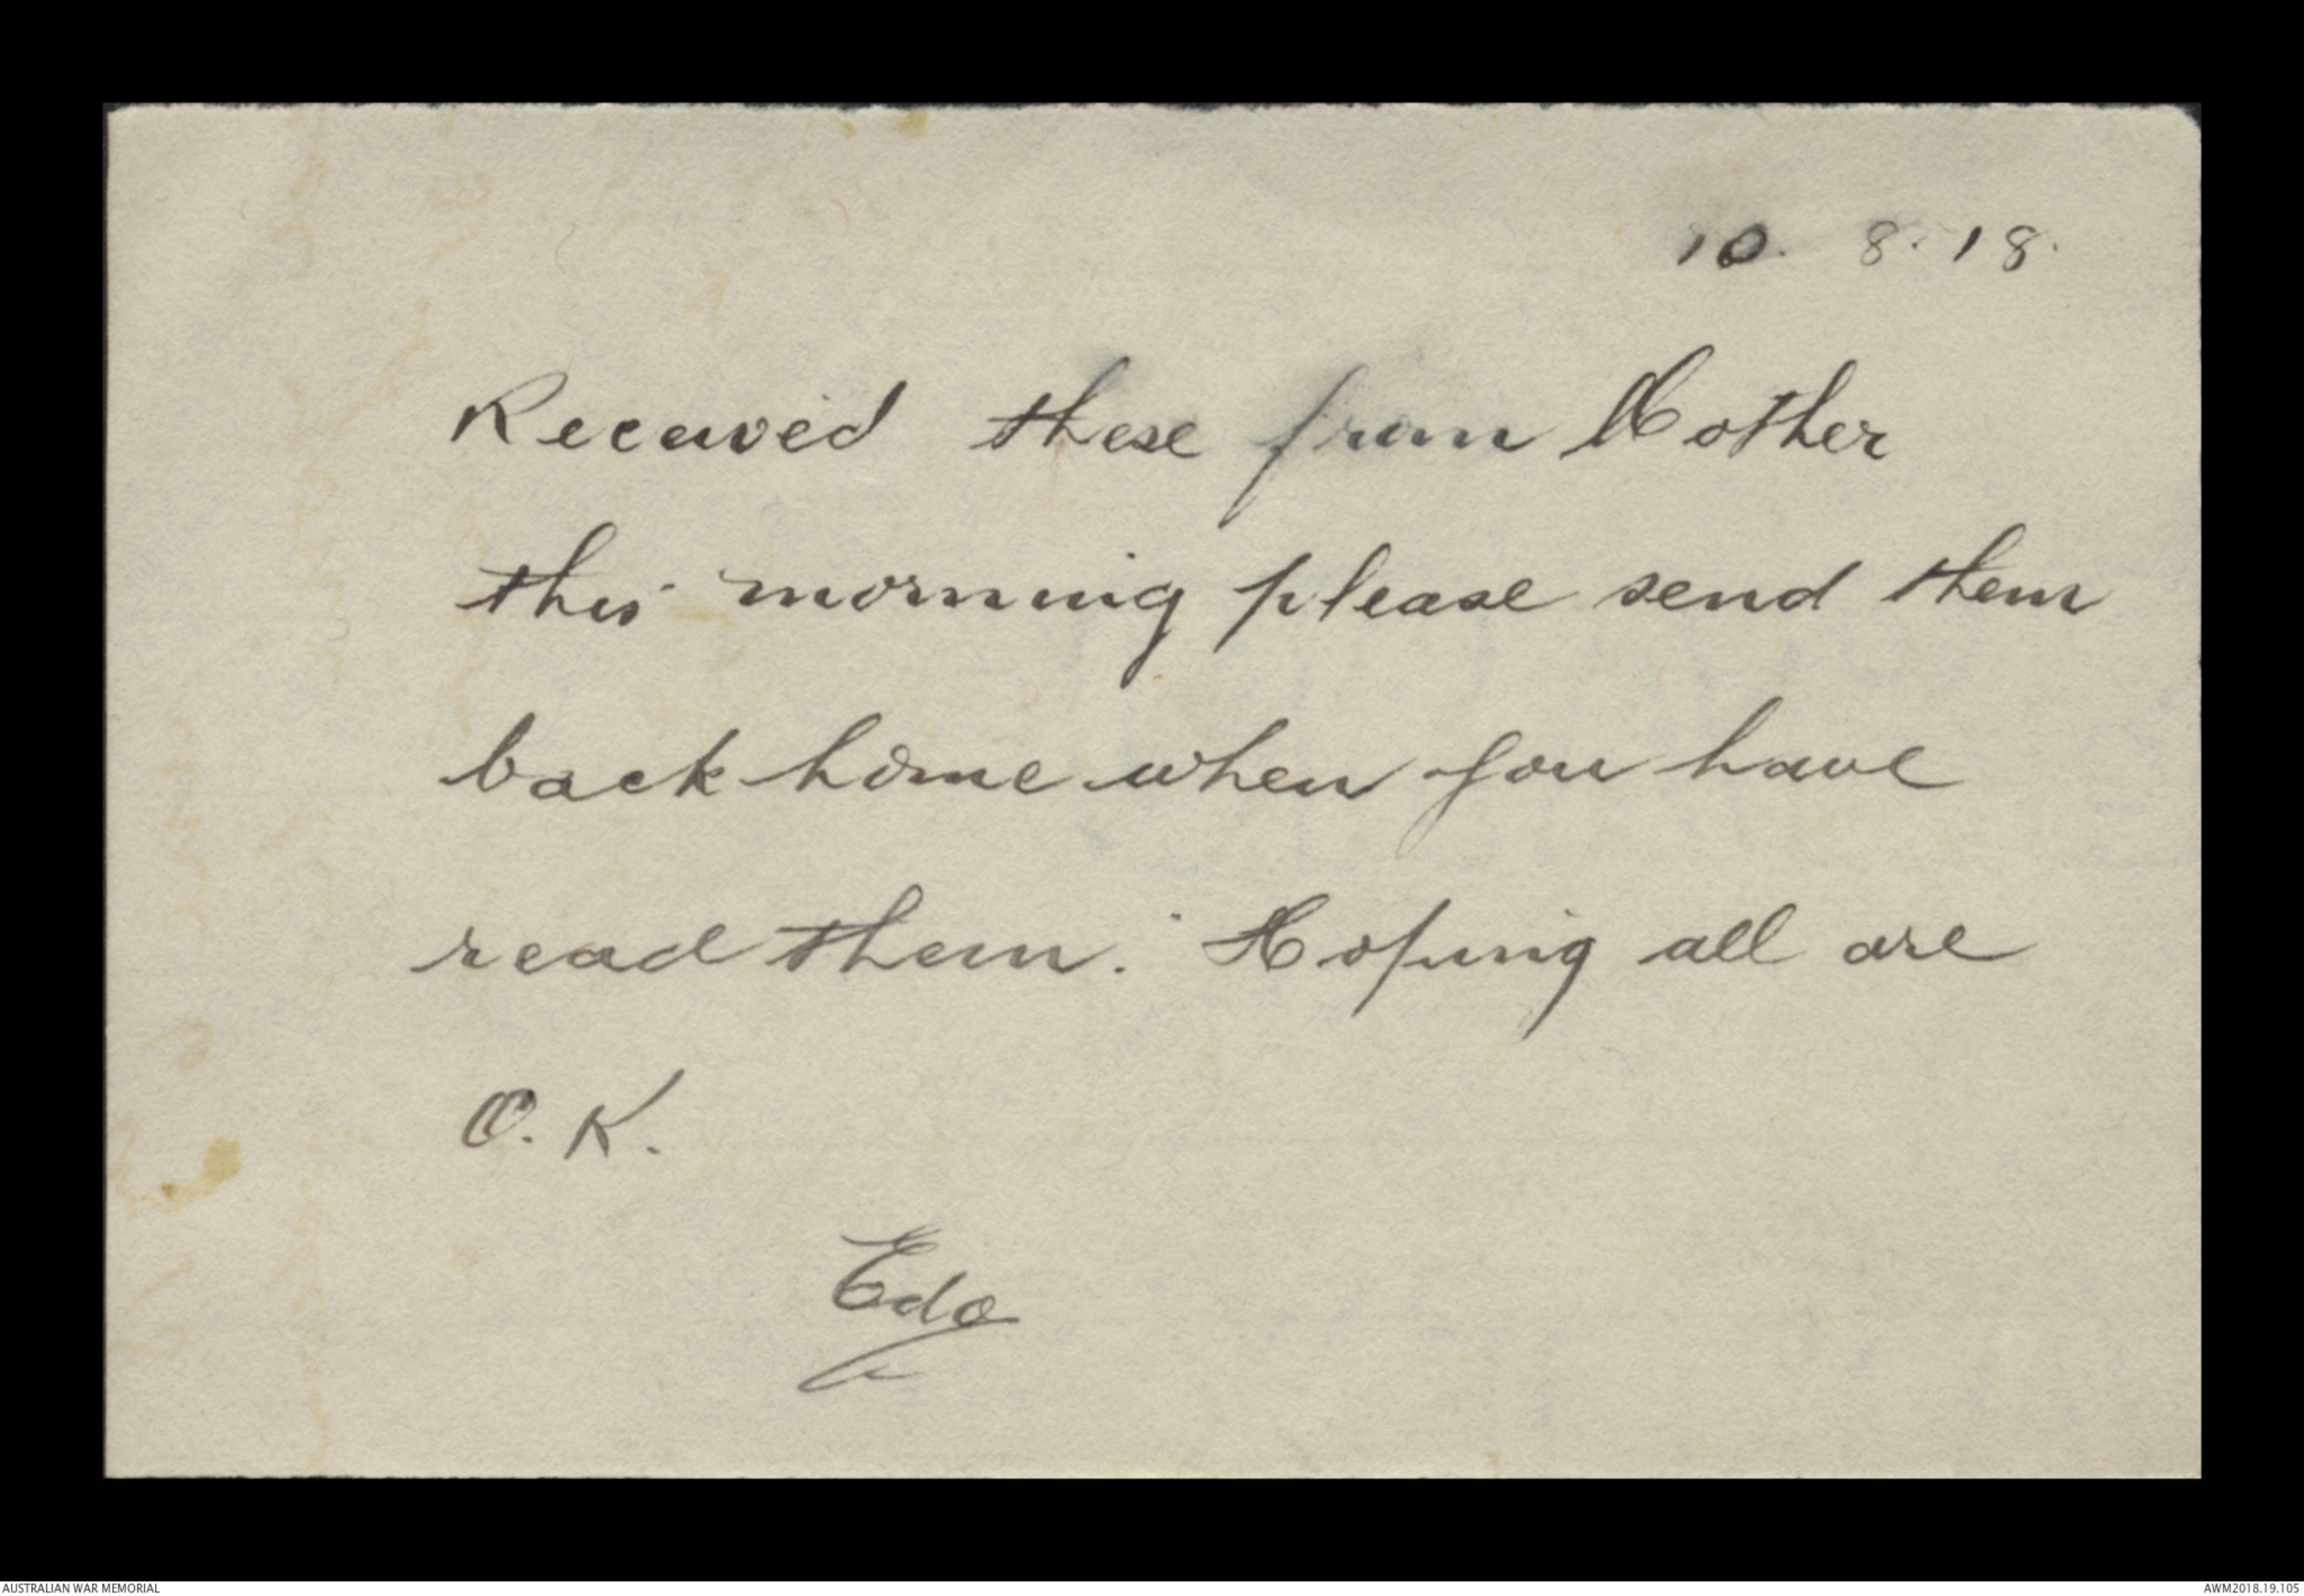 10. 8. 18.
Received these from Mother
this morning please send them
back home when you have
read them. Hoping all are
O. K.
Edo
AUSTRALIAN WAR MEMORIAL
AWM2018.19.105